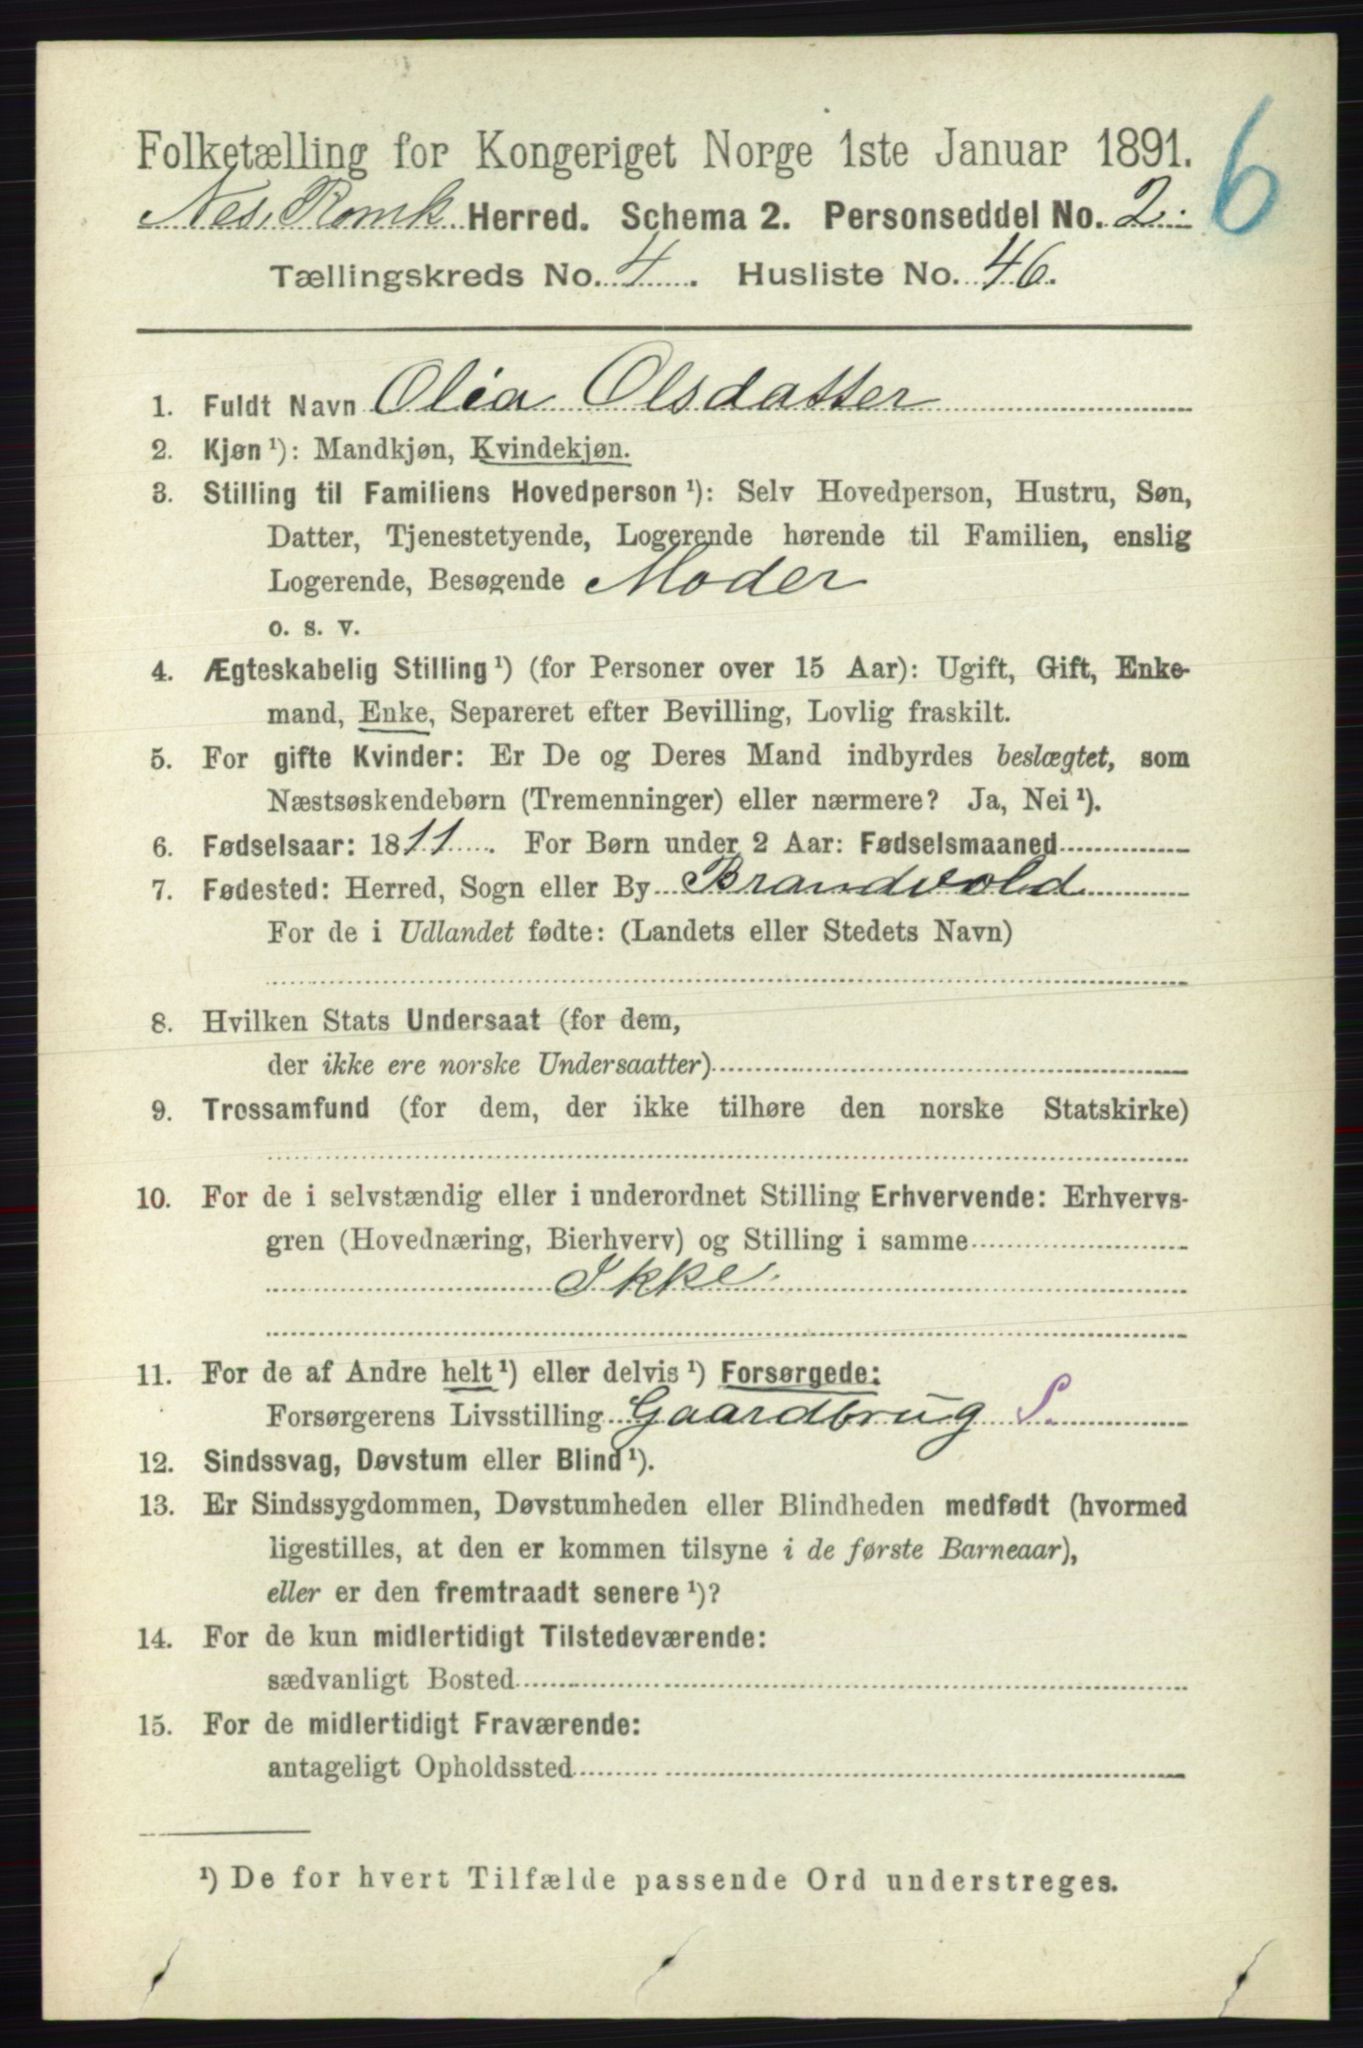 Folketælling for Kongeriget Norge 1ste Januar 1891.
6
Nes, Romk Herred. Schema 2. Personseddel No. 2.
Tællingskreds No. 4. Husliste No. 46.
1. Fuldt Navn Olia Olsdatter
2. Kjøn ¹): Mandkjøn, Kvindekjøn.
3. Stilling til Familiens Hovedperson ¹): Selv Hovedperson, Hustru, Søn,
Datter, Tjenestetyende, Logerende hørende til Familien, enslig
Logerende, Besøgende Moder
o. s. v.
4. Ægteskabelig Stilling ¹) (for Personer over 15 Aar): Ugift, Gift, Enke-
mand, Enke, Separeret efter Bevilling, Lovlig fraskilt.
5. For gifte Kvinder: Er De og Deres Mand indbyrdes beslægtet, som
Næstsøskendebørn (Tremenninger) eller nærmere? Ja, Nei ¹).
6. Fødselsaar: 1811. For Børn under 2 Aar: Fødselsmaaned
7. Fødested: Herred, Sogn eller By Brandvold
For de i Udlandet fødte: (Landets eller Stedets Navn)
8. Hvilken Stats Undersaat (for dem,
der ikke ere norske Undersaatter)
9. Trossamfund (for dem, der ikke tilhøre den norske Statskirke)
10. For de i selvstændig eller i underordnet Stilling Erhvervende: Erhvervs-
gren (Hovednæring, Bierhverv) og Stilling i samme
Ikke
11. For de af Andre helt ¹) eller delvis ¹) Forsørgede:
Forsørgerens Livsstilling Gaardbrug S.
12. Sindssvag, Døvstum eller Blind ¹).
13. Er Sindssygdommen, Døvstumheden eller Blindheden medfødt (hvormed
ligestilles, at den er kommen tilsyne i de første Barneaar),
eller er den fremtraadt senere ¹)?
14. For de kun midlertidigt Tilstedeværende:
sædvanligt Bosted
15. For de midlertidigt Fraværende:
antageligt Opholdssted
¹) De for hvert Tilfælde passende Ord understreges.